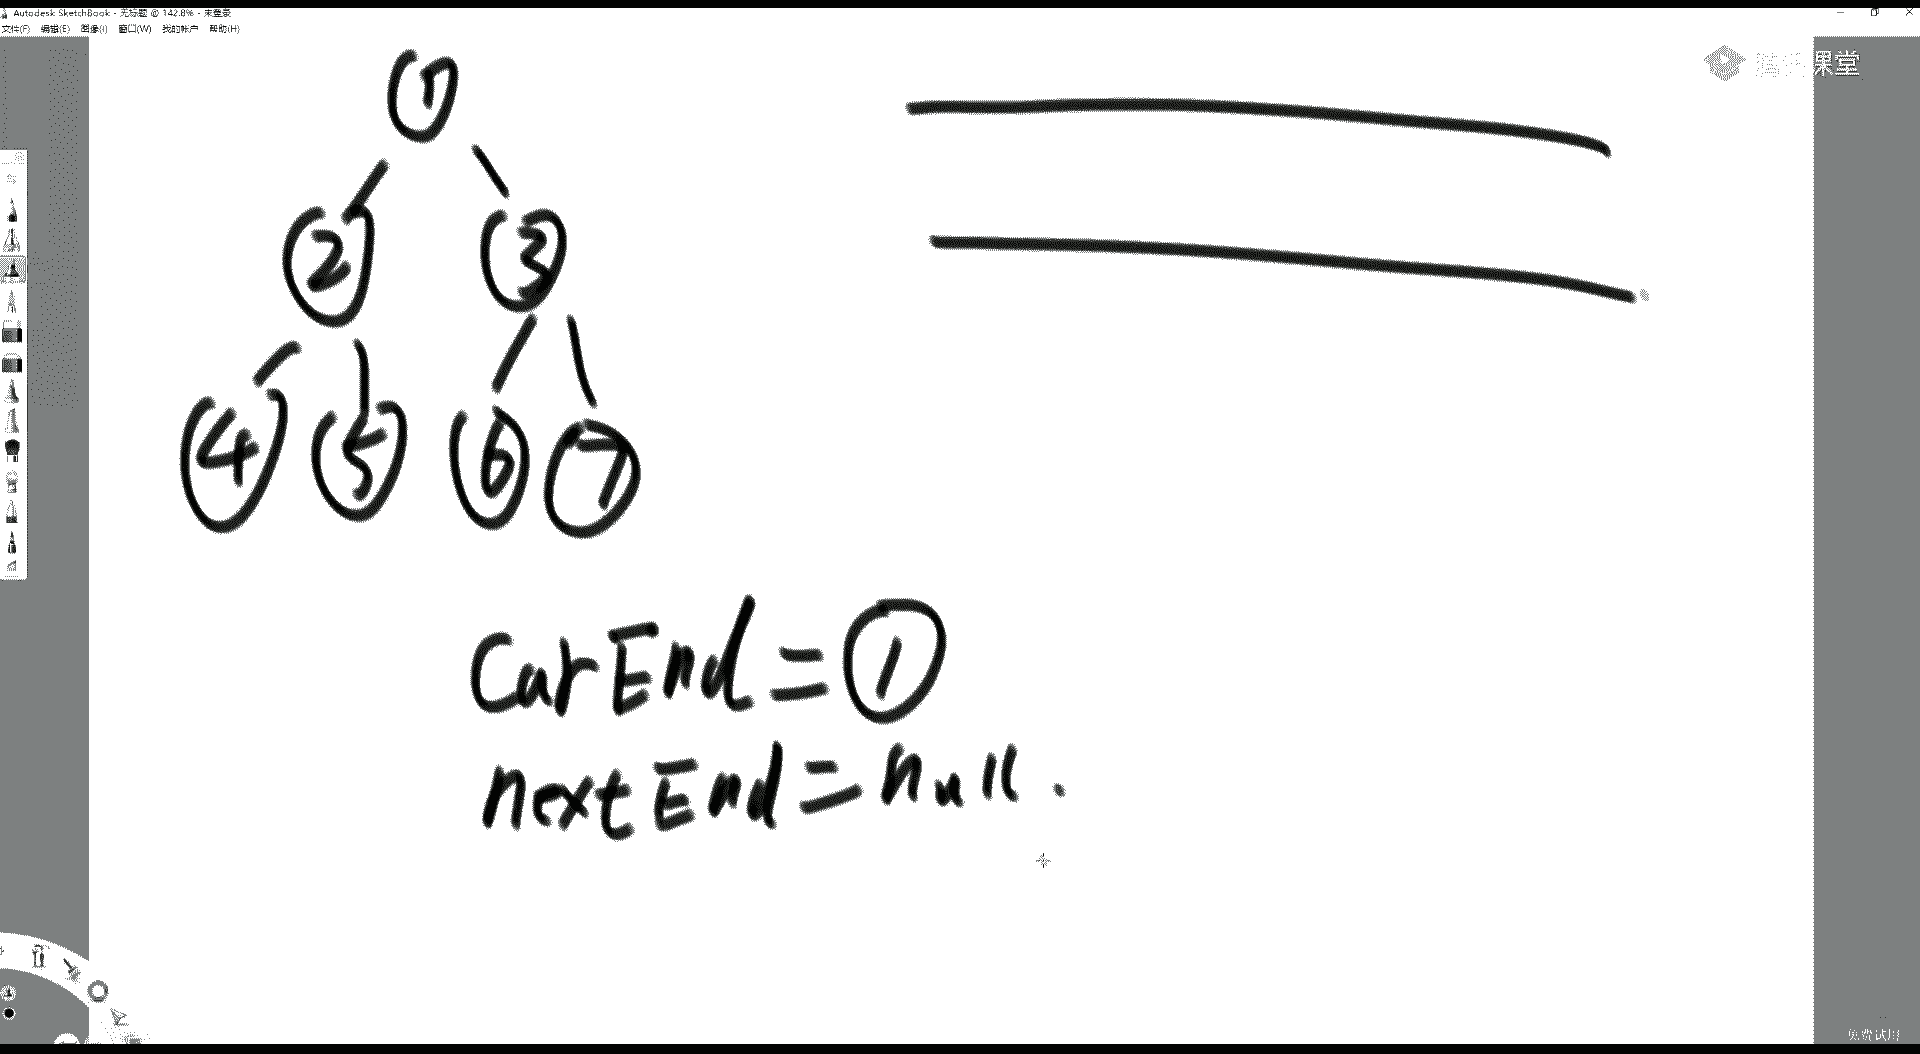 Autodesk SketchBook - 无标题 @ 142.8% - 未登录
文件(F) 编辑(E) 图像(I) 窗口(W) 我的帐户 帮助(H)
腾讯课堂
1
2 3
4 5 6 7
CurEnd = 1
nextEnd = null.
免费试用